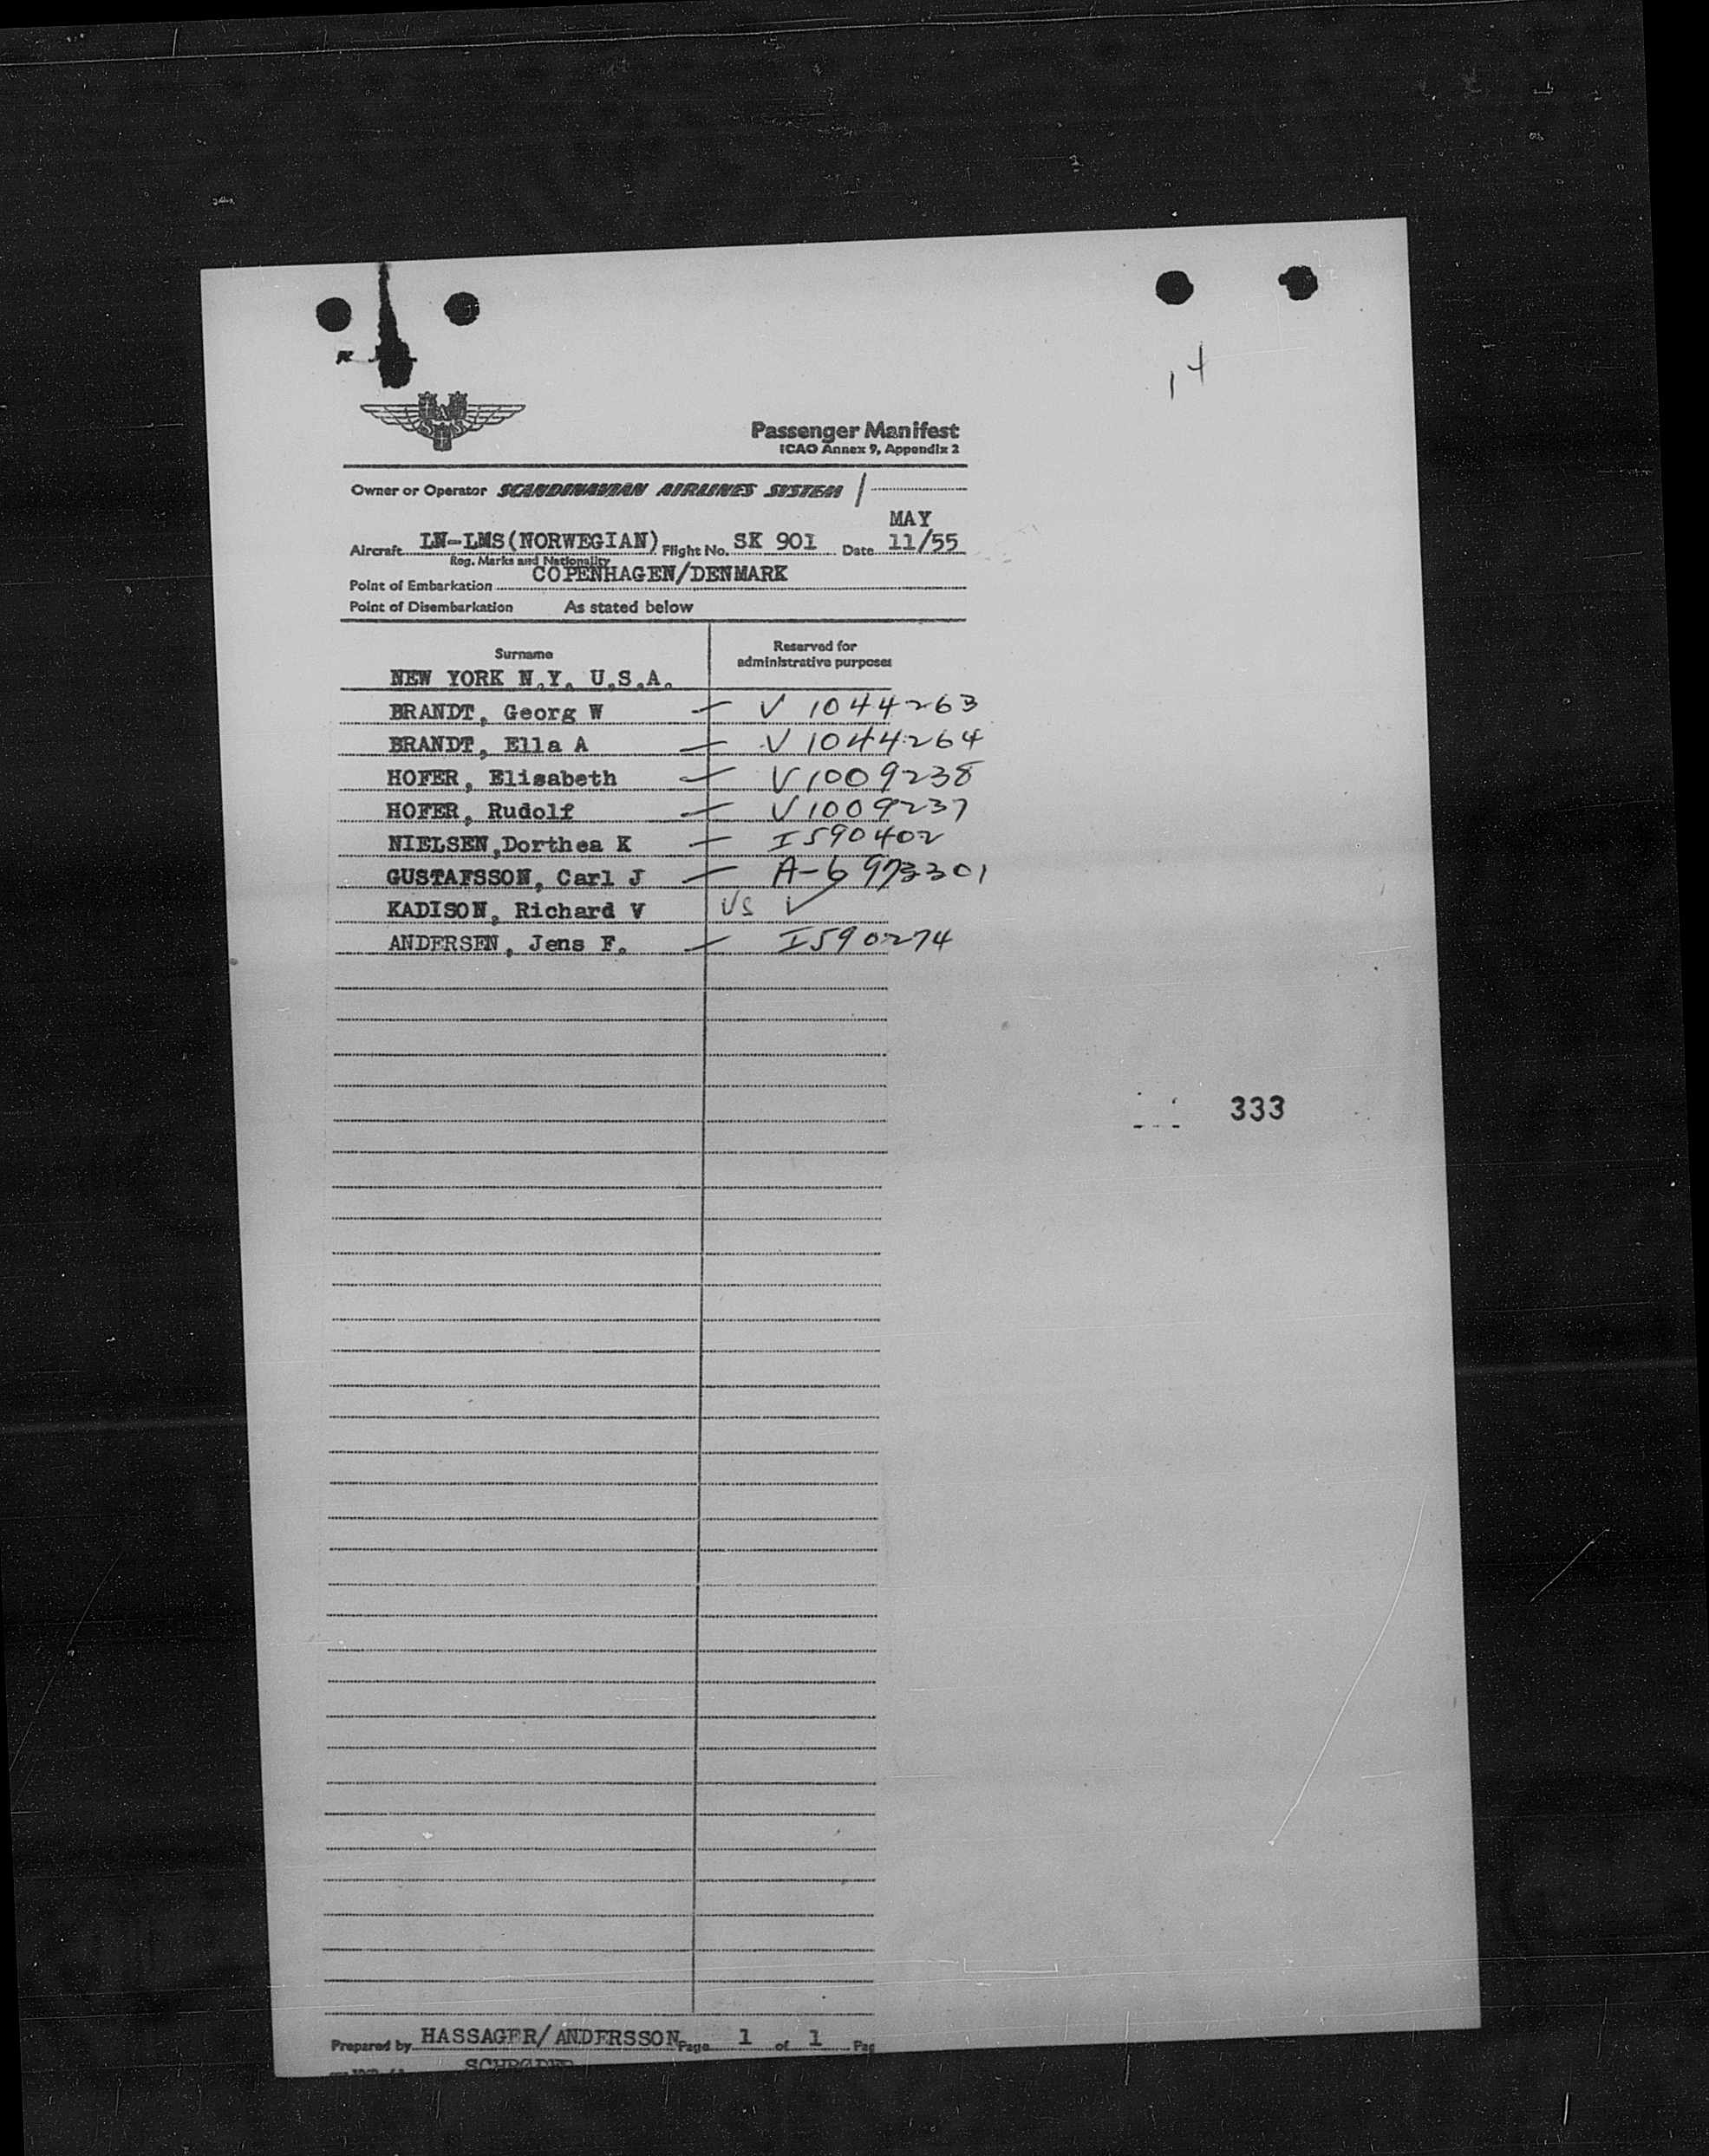 14
SAS
Passenger Manifest
ICAO Annex 9, Appendix 2
Owner or Operator SCANDINAVIAN AIRLINES SYSTEM /
MAY
Aircraft LN-LMS(NORWEGIAN) Flight No. SK 901 Date 11/55
Reg. Marks and Nationality
Point of Embarkation COPENHAGEN/DENMARK
Point of Disembarkation As stated below
Surname Reserved for administrative purposes
NEW YORK N.Y. U.S.A.
BRANDT, Georg W — V 1044263
BRANDT, Ella A — V 1044264
HOFER, Elisabeth — V1009238
HOFER, Rudolf — V1009237
NIELSEN,Dorthea K — I590402
GUSTAFSSON, Carl J — A-6 973301
KADISON, Richard V US V
ANDERSEN, Jens F. — I590274
333
Prepared by HASSAGER/ANDERSSON Page 1 of 1 Pag